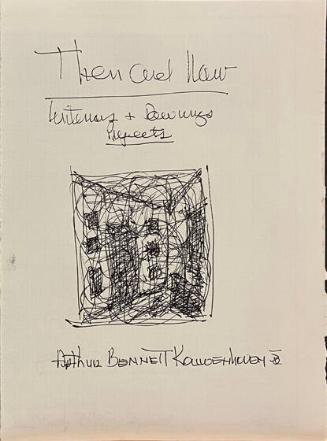 Then and Now
Writings + Drawings
Projects
Arthur Bennett